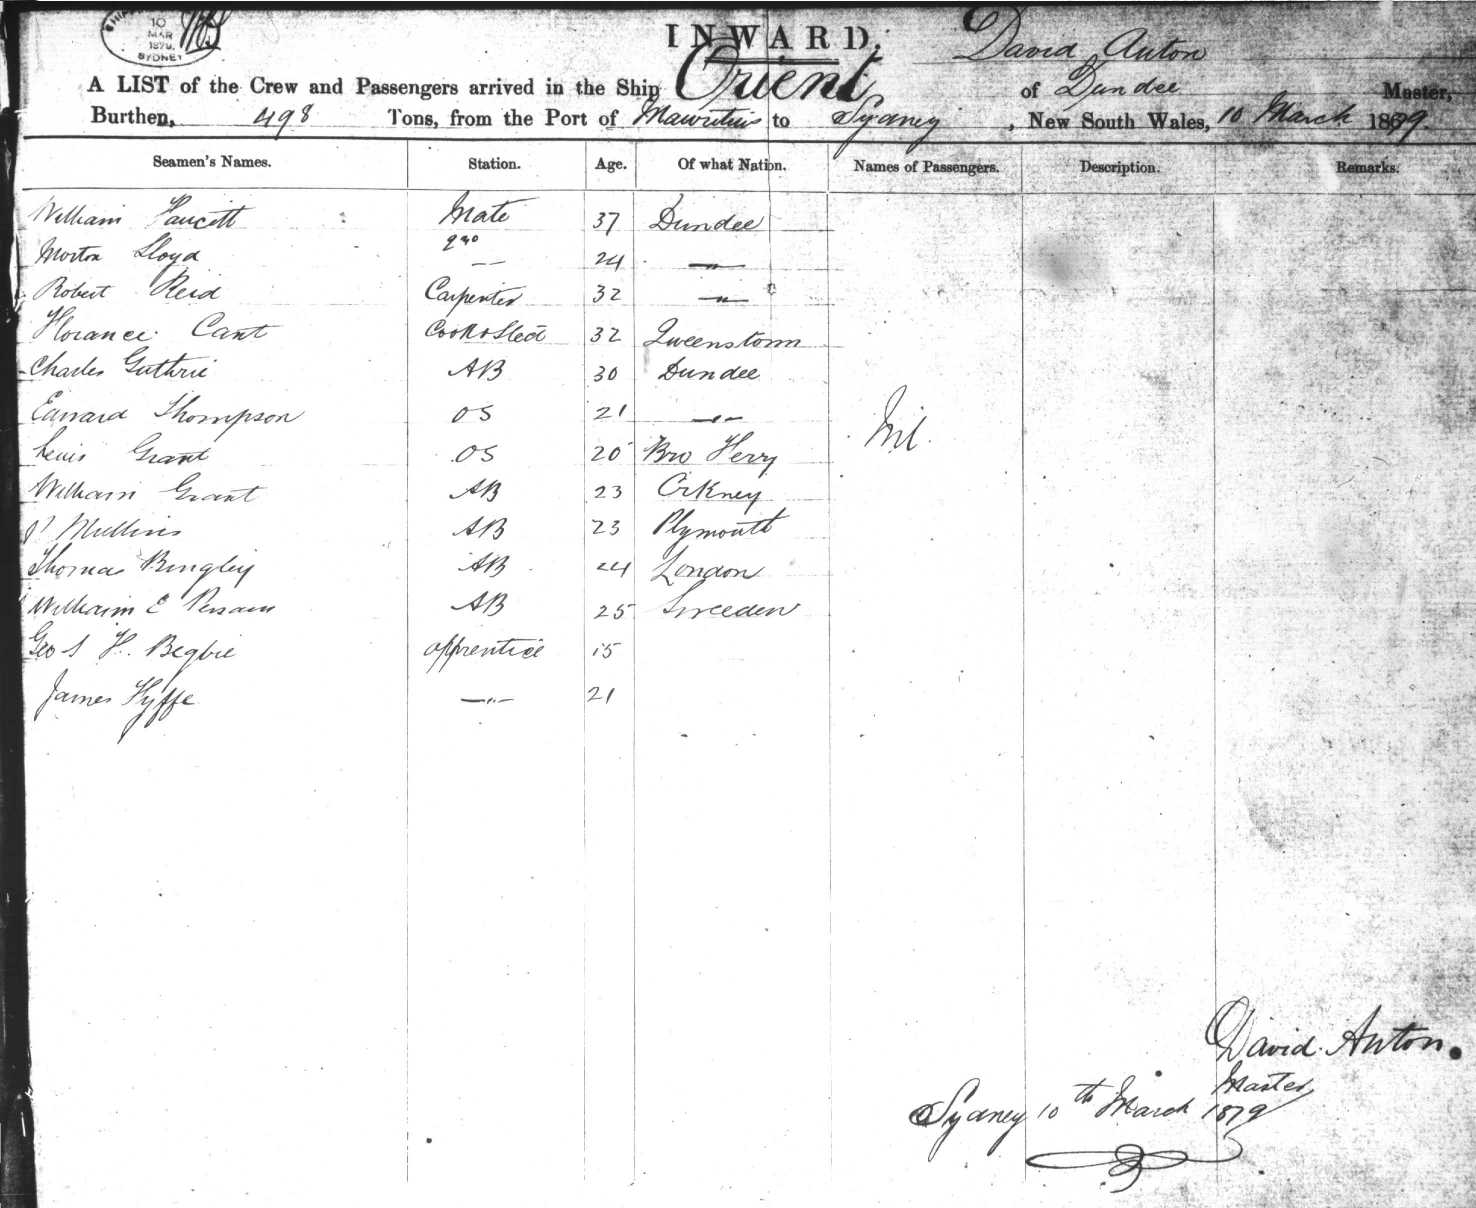 10
MAR
1879
SYDNEY
INWARD.
David Anton
A LIST of the Crew and Passengers arrived in the Ship Orient of Dundee Master,
Burthen, 498 Tons, from the Port of Mauritius to Sydney, New South Wales, 10 March 1879.
Seamen's Names. Station. Age. Of what Nation. Names of Passengers. Description. Remarks.
William Faucett Mate 37 Dundee
Morton Lloyd 2nd — 24 — " —
Robert Reid Carpenter 32 — " —
Florance Cant Cook & Sted 32 Queenstown
Charles Guthrie AB 30 Dundee
Edward Thompson OS 21 — " —
Lewis Grant OS 20 Bro Ferry
Nil.
William Grant AB 23 Orkney
Mullins AB 23 Plymouth
Thomas Bingley AB 24 London
William E AB 25 Sweeden
Geo S H. Begbie apprentice 15
James Fyffe — " — 21
David Anton.
Master
Sydney 10th March 1879